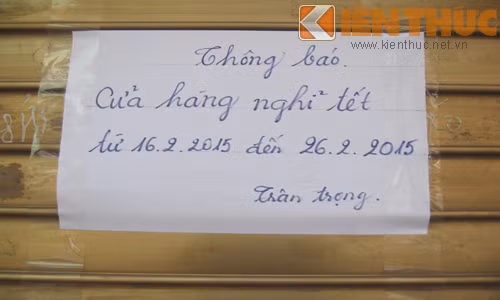 KIẾN THỨC
www.kienthuc.net.vn
Thông báo.
Cửa hàng nghỉ tết
từ 16.2.2015 đến 26.2.2015
Trân trọng.